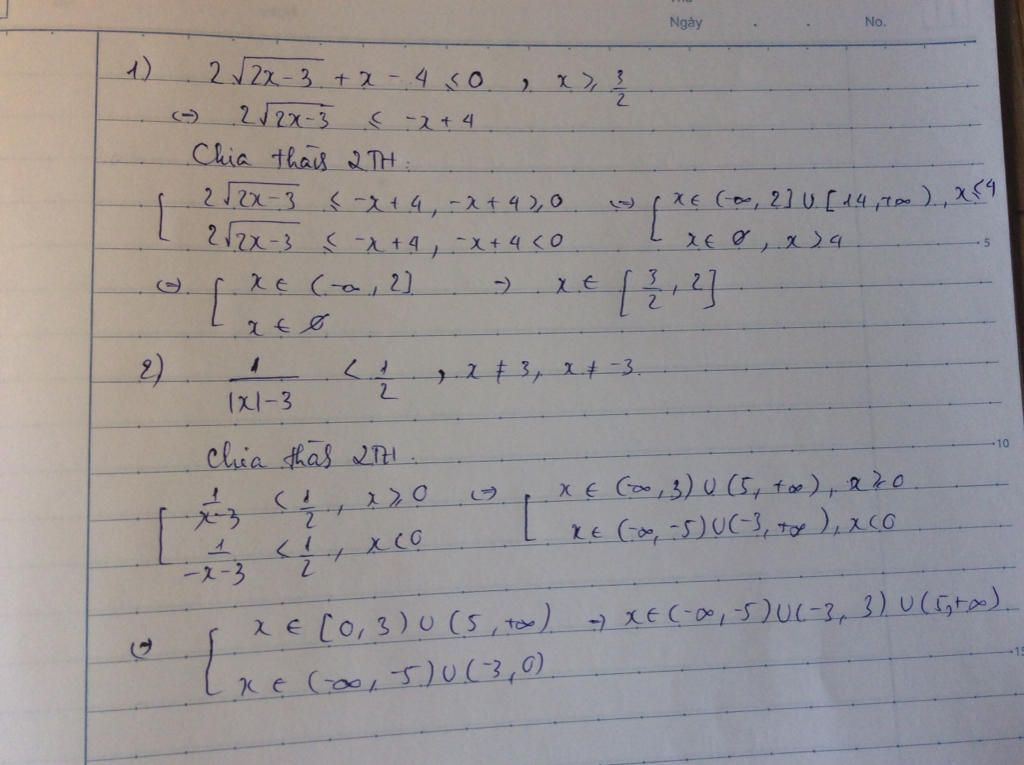 Ngày . . No.
1) 2√(2x-3) + x - 4 ≤ 0 , x ≥ 3/2
⇔ 2√(2x-3) ≤ -x+4
Chia thành 2TH:
[ 2√(2x-3) ≤ -x+4, -x+4 ≥ 0 ⇔ [ x ∈ (-∞, 2] ∪ [14, +∞), x ≤ 4
2√(2x-3) ≤ -x+4, -x+4 < 0 x ∈ ∅, x > 4 5
⇔ [ x ∈ (-∞, 2] → x ∈ [3/2, 2]
x ∈ ∅
2) 1/(|x|-3) < 1/2 , x ≠ 3, x ≠ -3
10
Chia thành 2TH.
[ 1/(x-3) < 1/2, x ≥ 0 ⇔ [ x ∈ (-∞, 3) ∪ (5, +∞), x ≥ 0
1/(-x-3) < 1/2, x < 0 x ∈ (-∞, -5) ∪ (-3, +∞), x < 0
⇔ [ x ∈ [0, 3) ∪ (5, +∞) → x ∈ (-∞, -5) ∪ (-3, 3) ∪ (5, +∞)
x ∈ (-∞, -5) ∪ (-3, 0) 15